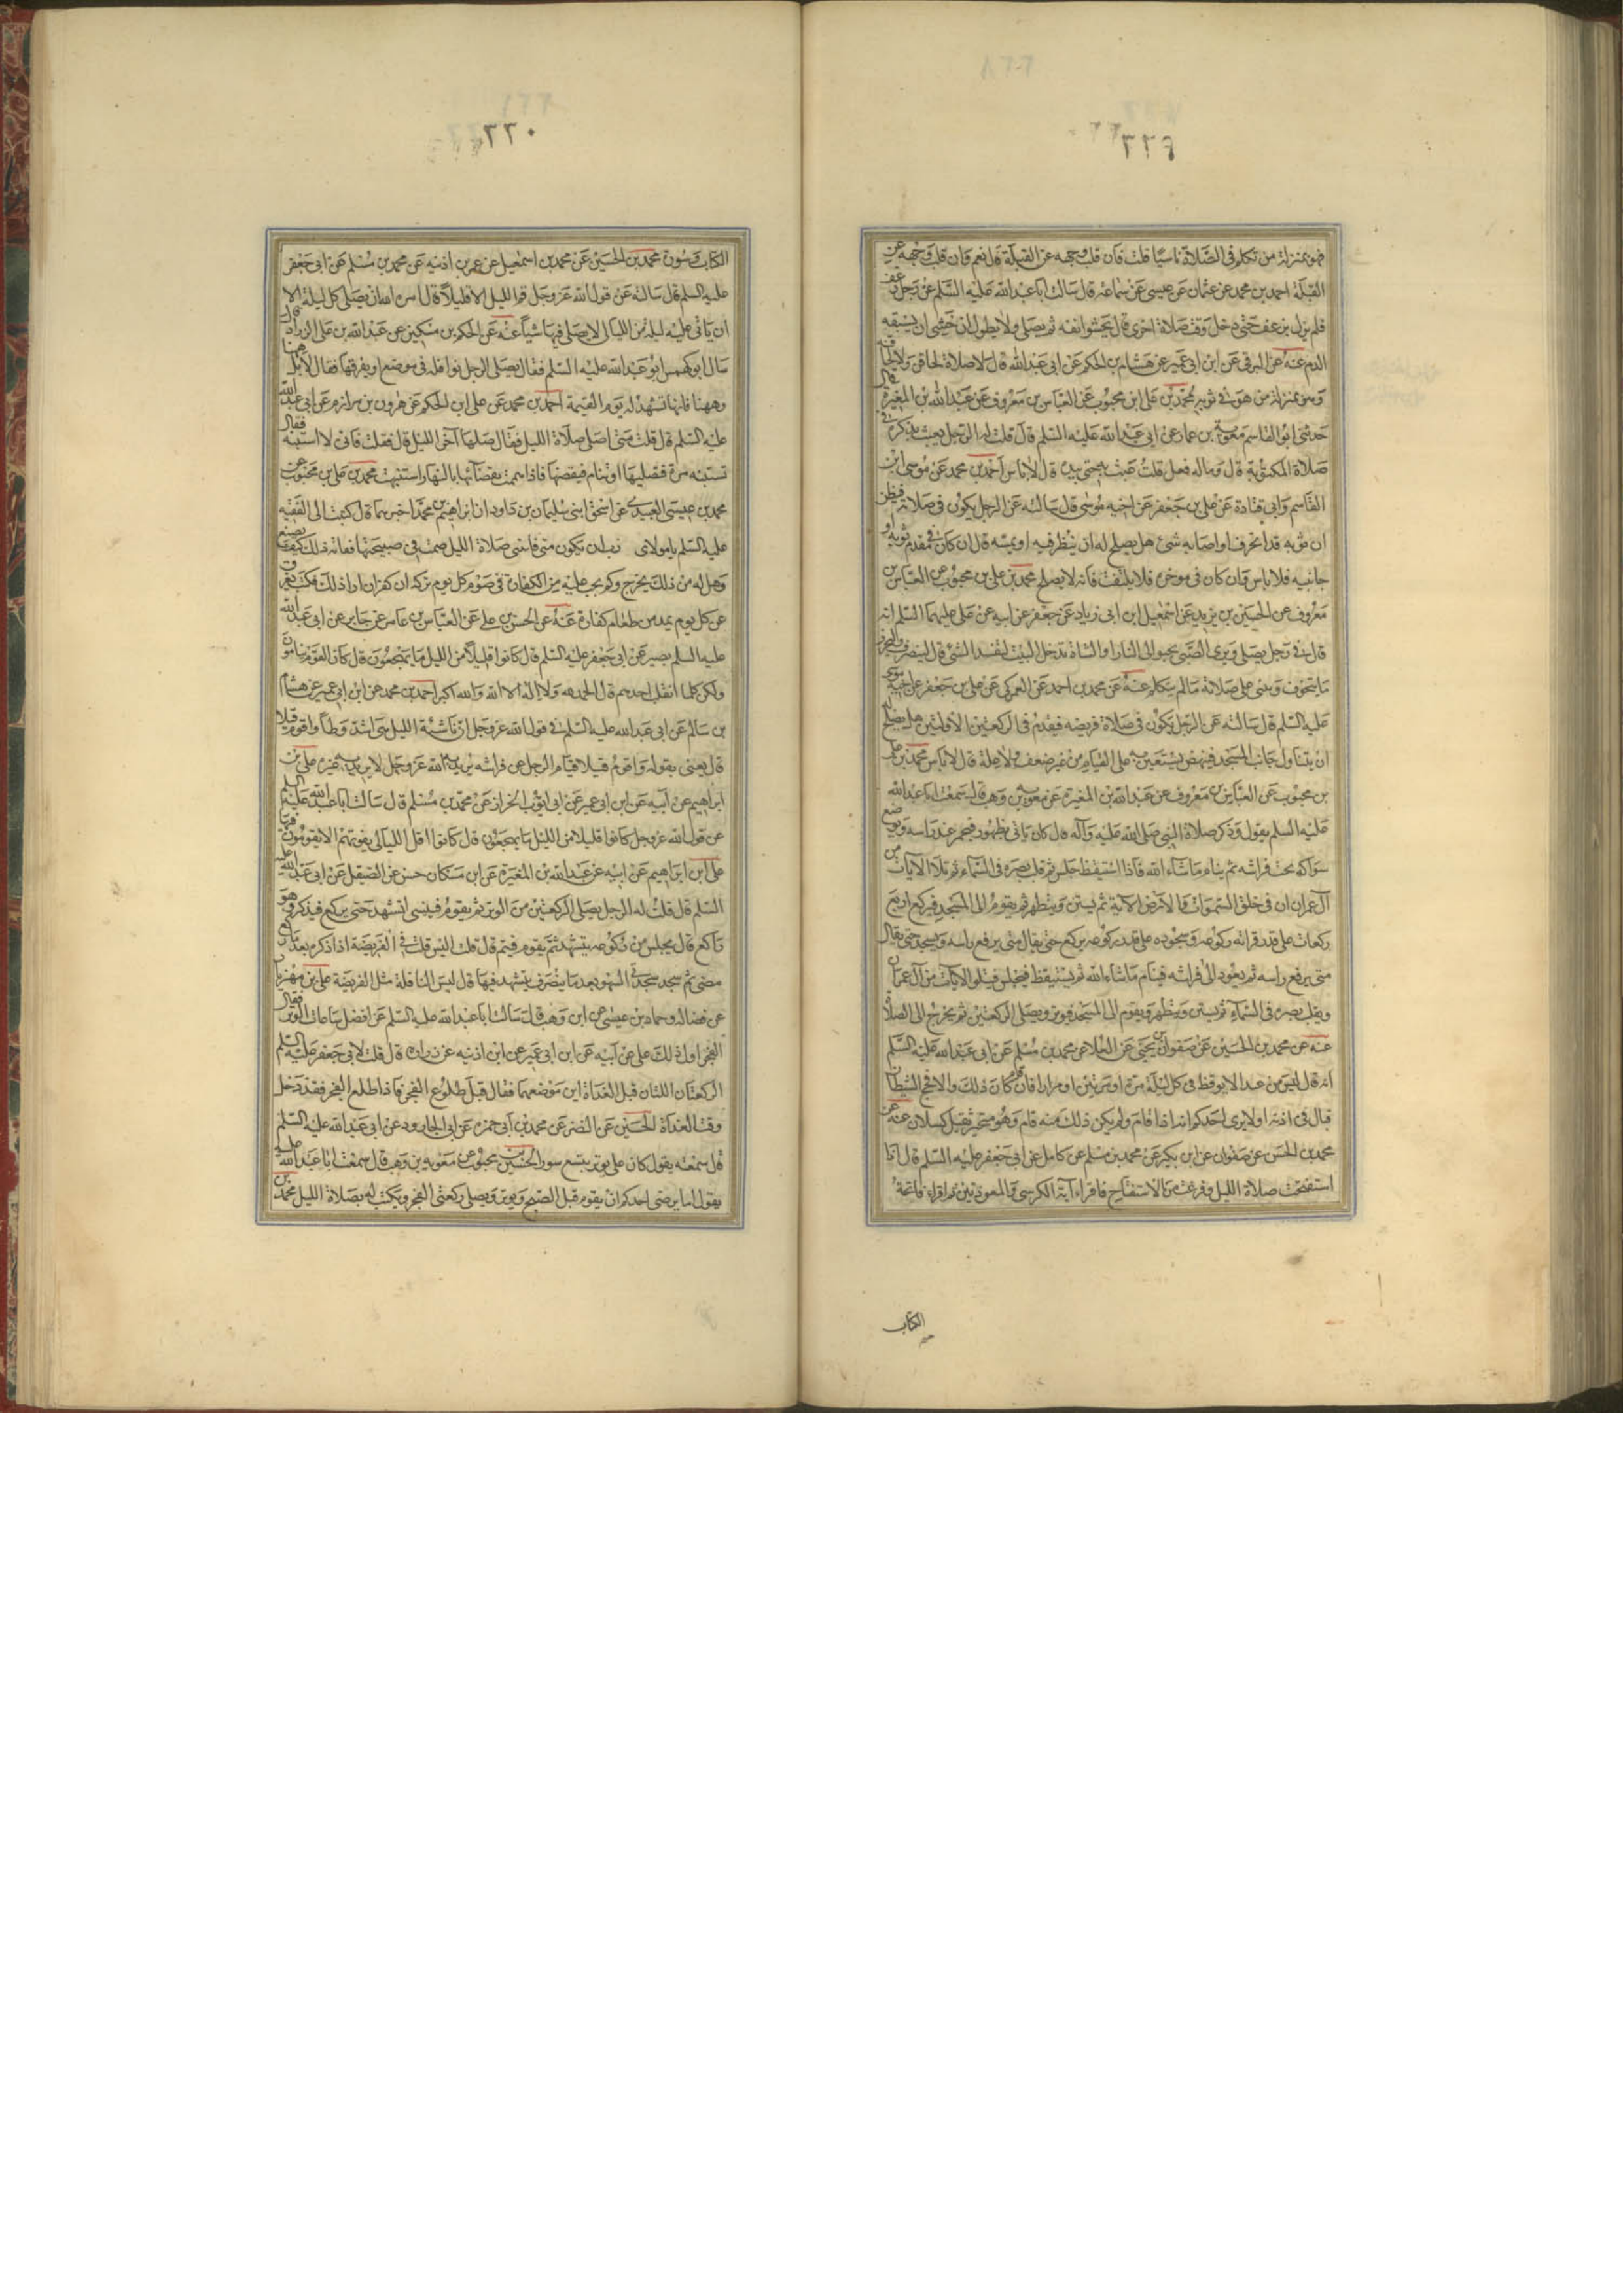 ٣٢٩
فهو بمنزلة من تكلم في الصلاة ناسيا قلت فان قلب وجهه عن القبلة قال نعم وان قلب وجهه عن
القبلة احمد بن محمد عن عثمان بن عيسى عن سماعة قال سالت ابا عبد الله عليه السلم عن رجل
فلم يزل حتى دخل وقت صلاة اخرى قال يحشوا نفه ثم يصلي ولا يطول ان خشي ان يسبقه
الدم عنه عن البرقي عن ابن ابي عمير عن هشام بن الحكم عن ابي عبد الله قال لا صلاة لحاقن ولا لحاقنه
وهو بمنزلة من هو في ثوبه محمد بن علي ابن محبوب عن العباس بن معروف عن عبد الله بن المغيرة قال
حدثني ابو القاسم معوية بن عمار عن ابي عبد الله عليه السلم قال قلت له الرجل يعبث بذكره في
صلاة المكتوبة قال وما له فعل قلت عبث به حتى قال لا باس احمد بن محمد عن موسى ابن
القاسم وابي قتادة عن علي بن جعفر عن اخيه موسى قال سالته عن الرجل يكون في صلاته فيظن
ان ثوبه قد انخرق او اصابه شئ هل يصلح له ان ينظر فيه او يمسه قال ان كان في مقدم ثوبه او
جانبيه فلا باس وان كان في موخره فلا يلتفت فانه لا يصلح محمد بن علي بن محبوب عن العباس بن
معروف عن الحسين بن يزيد عن اسمعيل ابن ابي زياد عن جعفر عن ابيه عن علي عليهما السلم انه
قال في رجل يصلي ويرى الصبي يحبوا لى النار او الشاة تدخل البيت لتفسد الشئ قال لينصرف وليحرز
ما يتخوف ويبنى على صلاته ما لم يتكلم عنه عن محمد بن احمد عن العمركي عن علي بن جعفر عن اخيه موسى
عليه السلم قال سالته عن الرجل يكون في صلاة فريضه فيقوم في الركعتين الاولتين هل يصلح له
ان يتناول جانب المسجد فينهض يستعين به على القيام من غير ضعف ولا علة قال لا باس محمد بن علي
بن محبوب عن العباس بن معروف عن عبد الله بن المغيرة عن معوية بن وهب قال سمعت ابا عبد الله
عليه السلم يقول وذكر صلاة النبي صلى الله عليه واله قال كان ياتي بطهور فيخمر عند راسه ويوضع
سواكه تحت فراشه ثم ينام ما شاء الله فاذا استيقظ جلس ثم قلب بصره في السماء ثم تلا الايات من
آل عمران ان في خلق السموات والارض الاية ثم يستن ويتطهر ثم يقوم الى المسجد فيركع اربع
ركعات على قدر قرائته ركوعه وسجوده على قدر ركوعه يركع حتى يقال متى يرفع راسه ويسجد حتى يقال
متى يرفع راسه ثم يعود الى فراشه فينام ما شاء الله ثم يستيقظ فيجلس فيتلو الايات من آل عمران
ويقلب بصره في السماء ثم يستن ويتطهر ويقوم الى المسجد فيوتر ويصلي الركعتين ثم يخرج الى الصلاة
عنه عن محمد بن الحسين عن صفوان بن يحيى عن العلا عن محمد بن مسلم عن ابي عبد الله عليه السلم
انه قال ليس من عبد الا يوقظ في كل ليلة مرة او مرتين او مرارا فان قام كان ذلك والا فحج الشيطان
فبال في اذنه اولا يرى احدكم انه اذا قام ولم يكن ذلك منه قام وهو متحير ثقيل كسلان عنه عن
محمد بن الحسن عن صفوان عن ابن بكير عن محمد بن مسلم عن كامل عن ابي جعفر عليه السلم قال اذا
استفتحت صلاة الليل وفرغت من الاستفتاح فاقراء اية الكرسي والمعوذتين ثم اقراء فاتحة
الكتاب
٣٣٠
الكتاب وسورة محمد بن الحسين عن محمد بن اسمعيل عن عمر بن اذينه عن محمد بن مسلم عن ابي جعفر
عليه السلم قال سالته عن قول الله عز وجل قم الليل الا قليلا قال امره الله ان يصلي كل ليلة الا
ان ياتي عليه ليلة من الليالي لا يصلي فيها شيئا عنه عن الحكم بن مسكين عن عبد الله بن علي الزراد قال
سال ابو كهمس ابو عبد الله عليه السلم فقال يصلي الرجل نوافله في موضع او يفرقها فقال لا بل ههنا
وههنا فانها تشهد له يوم القيمة احمد بن محمد عن علي ابن الحكم عن هرون بن عن ابي عبد الله
عليه السلم قال قلت متى اصلي صلاة الليل فقال صلها اخر الليل قال فقلت فاني لا استنبه فقال
تستنبه مرة فتصليها وتنام فتقضيها فاذا هممت بقضائها بالنهار استنبهت محمد بن علي بن محبوب عن
محمد بن عيسى العبيدي عن اسحق ابني سليمان بن داود ان ابراهيم بن محمد اخبرهما قال كتبت الى الفقيه
عليه السلم يا مولاي نذرت ان يكون متى فاتني صلاة الليل صمت في صبيحتها ففاته ذلك كيف يصنع
وهل له من ذلك مخرج وكم يجب عليه من الكفارة في صوم كل يوم تركه ان كفر ان اراد ذلك فكتب يفرق
عن كل يوم بمد من طعام كفارة عنه عن الحسن بن علي عن العباس بن عامر عن جابر عن ابي عبد الله
عليه السلم بصير عن ابي جعفر عليه السلم قال كانوا قليلا من الليل ما يهجعون قال كان القوم ينامون
ولكن كلما انقلب احدهم قال الحمد لله ولا اله الا الله والله اكبر احمد بن محمد عن ابن ابي عمير عن هشام
بن سالم عن ابي عبد الله عليه السلم في قول الله عز وجل ان ناشئة الليل هي اشد وطأ واقوم قيلا
قال يعنى بقوله واقوم قيلا قيام الرجل عن فراشه يريد به الله عز وجل لا يريد به غيره علي بن
ابراهيم عن ابيه عن ابن ابي عمير عن ابي ايوب الخزاز عن محمد بن مسلم قال سالت ابا عبد الله عليه السلم
عن قول الله عز وجل كانوا قليلا من الليل ما يهجعون قال كانوا اقل الليالي يفوتهم لا يقومون فيها
علي ابن ابراهيم عن ابيه عن عبد الله بن المغيرة عن ابن مسكان حسن عن الصيقل عن ابي عبد الله عليه
السلم قال قلت له الرجل يصلي الركعتين من الوتر ثم يقوم فينسى التشهد حتى يركع فيذكر وهو
راكع قال يجلس من ركوعه يتشهد ثم يقوم فيتم قال قلت اليس قلت في الفريضة اذا ذكره بعد ما ركع
مضى ثم سجد سجدتي السهو بعد ما ينصرف يتشهد فيها قال ليس النافلة مثل الفريضة علي بن مهزيار
عن فضاله وحماد بن عيسى عن ابن وهب قال سالت ابا عبد الله عليه السلم عن افضل ساعات الوتر فقال
الفجر اول ذلك علي عن ابيه عن ابن ابي عمير عن ابن اذينه عن زرارة قال قلت لابي جعفر عليه السلم
الركعتان اللتان قبل الغداة اين موضعهما فقال قبل طلوع الفجر فاذا طلع الفجر فقد دخل
وقت الغداة الحسين عن النضر عن محمد بن ابي حمزه عن ابي الجارود عن ابي عبد الله عليه السلم
قال سمعته يقول كان علي يوتر بتسع سور الحسين بن محبوب عن معويه بن وهب قال سمعت ابا عبد الله عليه
يقول اما يرضى احدكم ان يقوم قبل الصبح ويوتر ويصلي ركعتي الفجر ويكتب له بصلاة الليل محمد بن